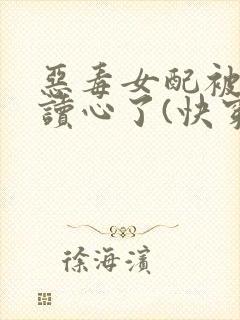 惡毒女配被
讀心了(快穿
徐海濱